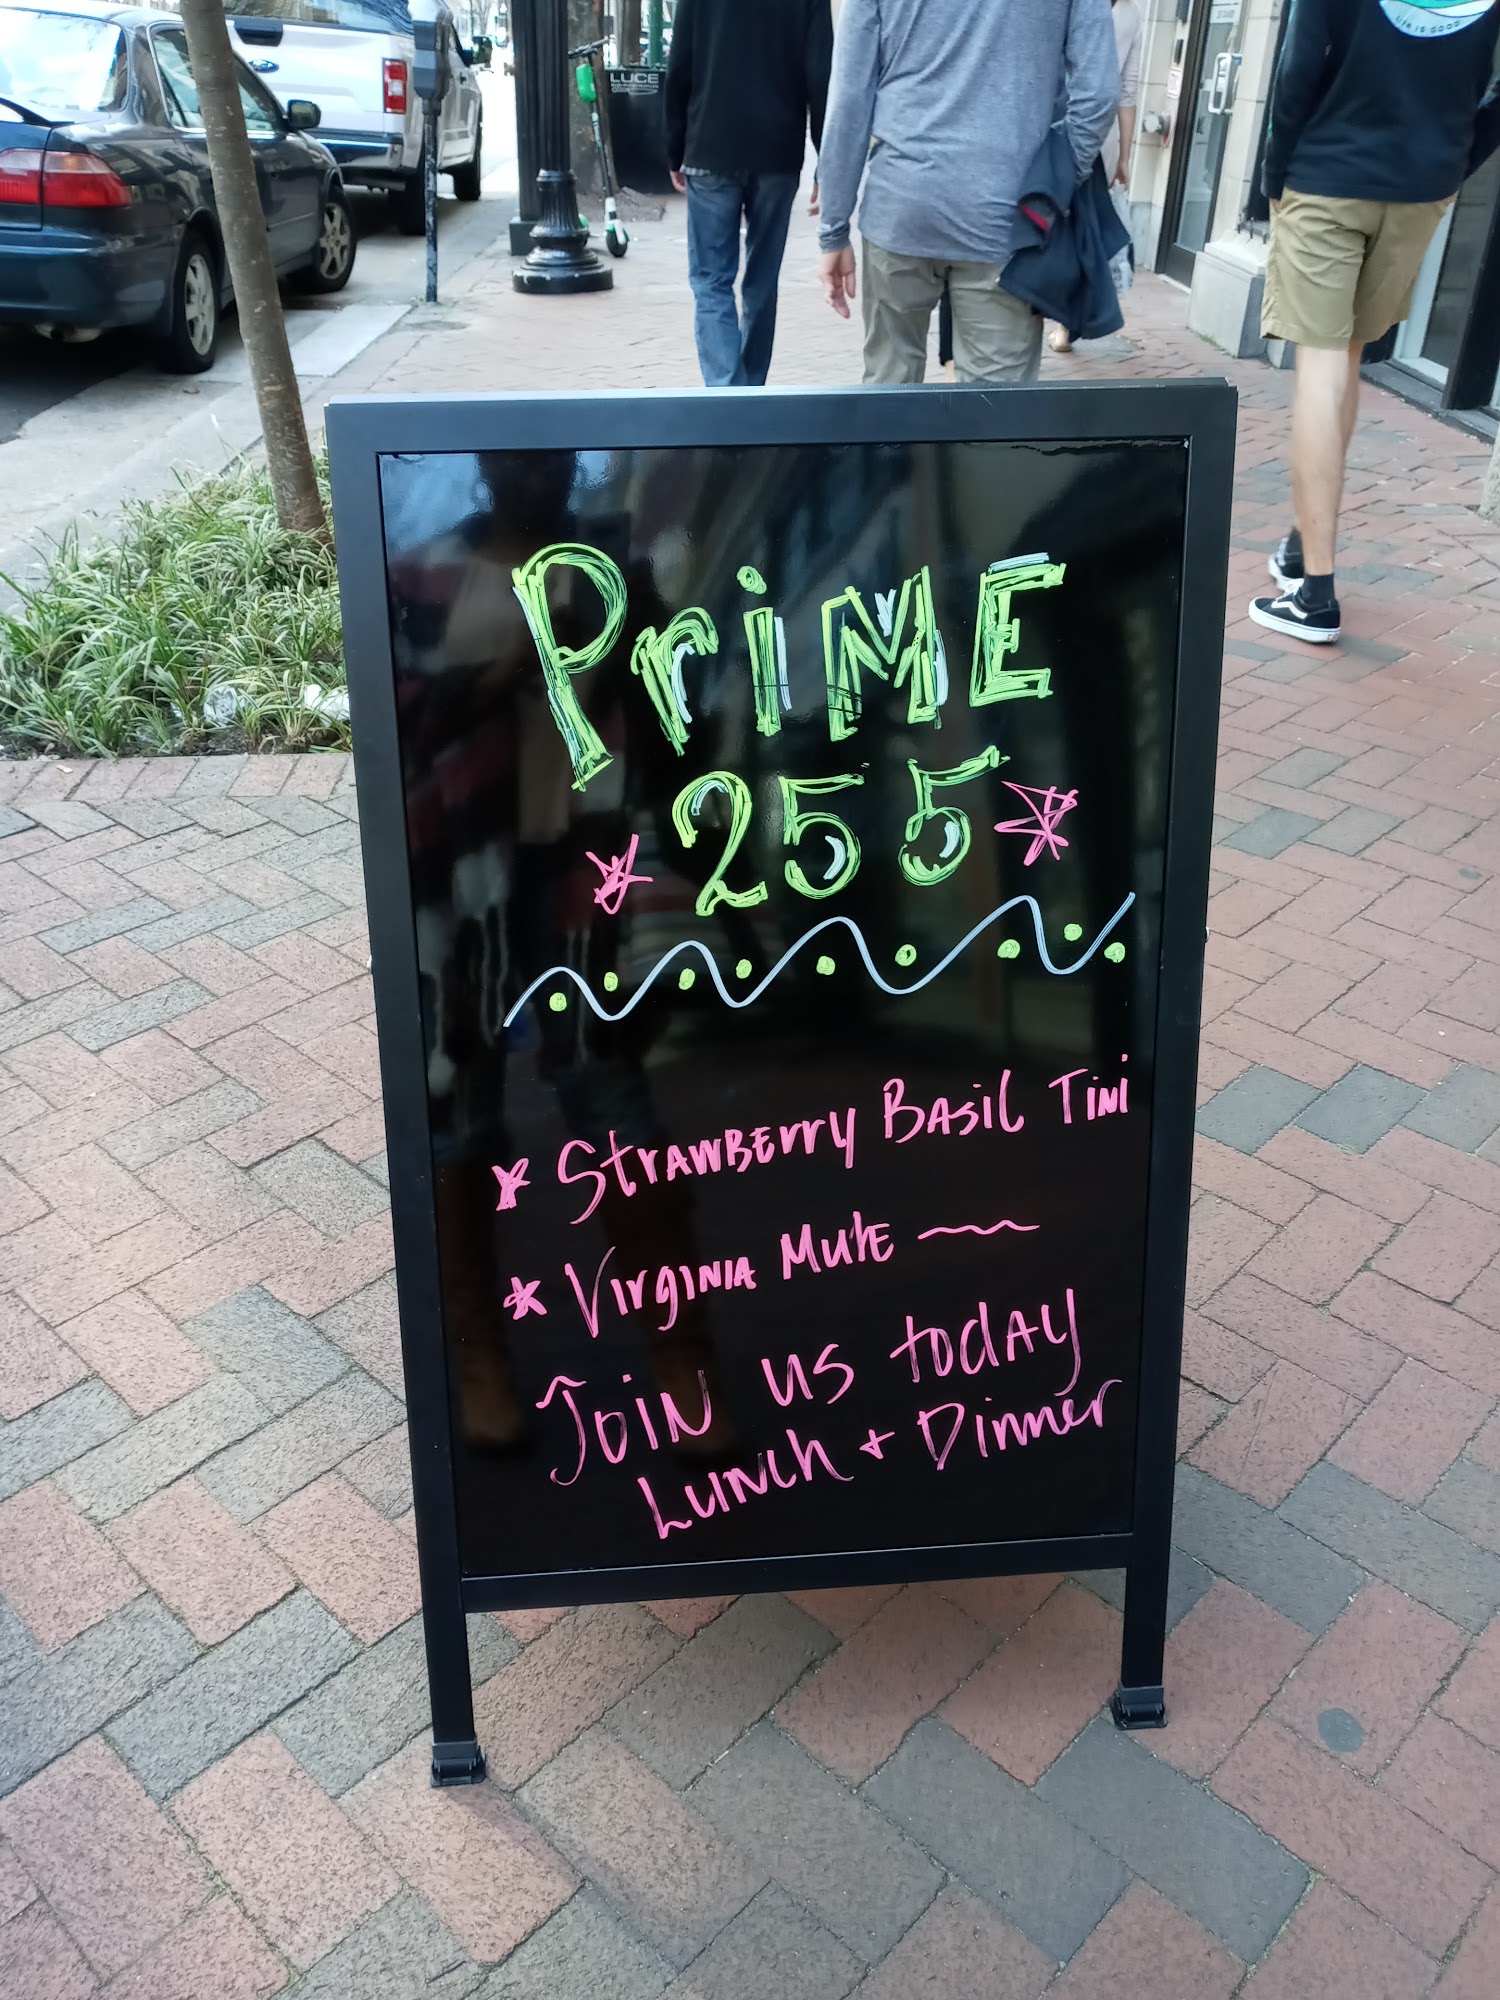 Life is good
LUCE
PriME
255
Strawberry Basil Tini
Virginia Mule
Join us today
Lunch + Dinner